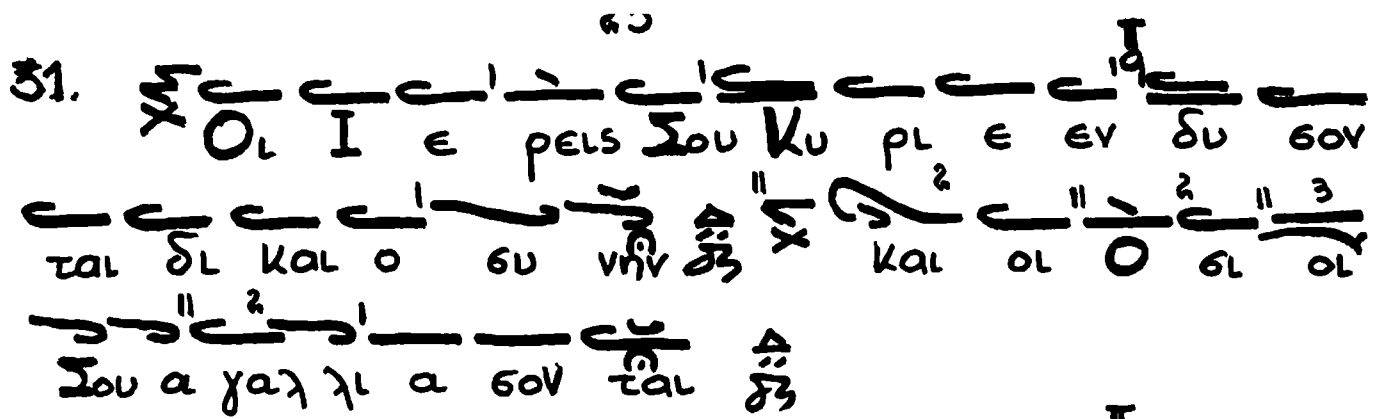 31. Οι Ι ε ρεις Σου Κυ ρι ε εν δυ σον
ται δι και ο συ νην και οι Ο σι οι
Σου α γαλ λι α σον ται